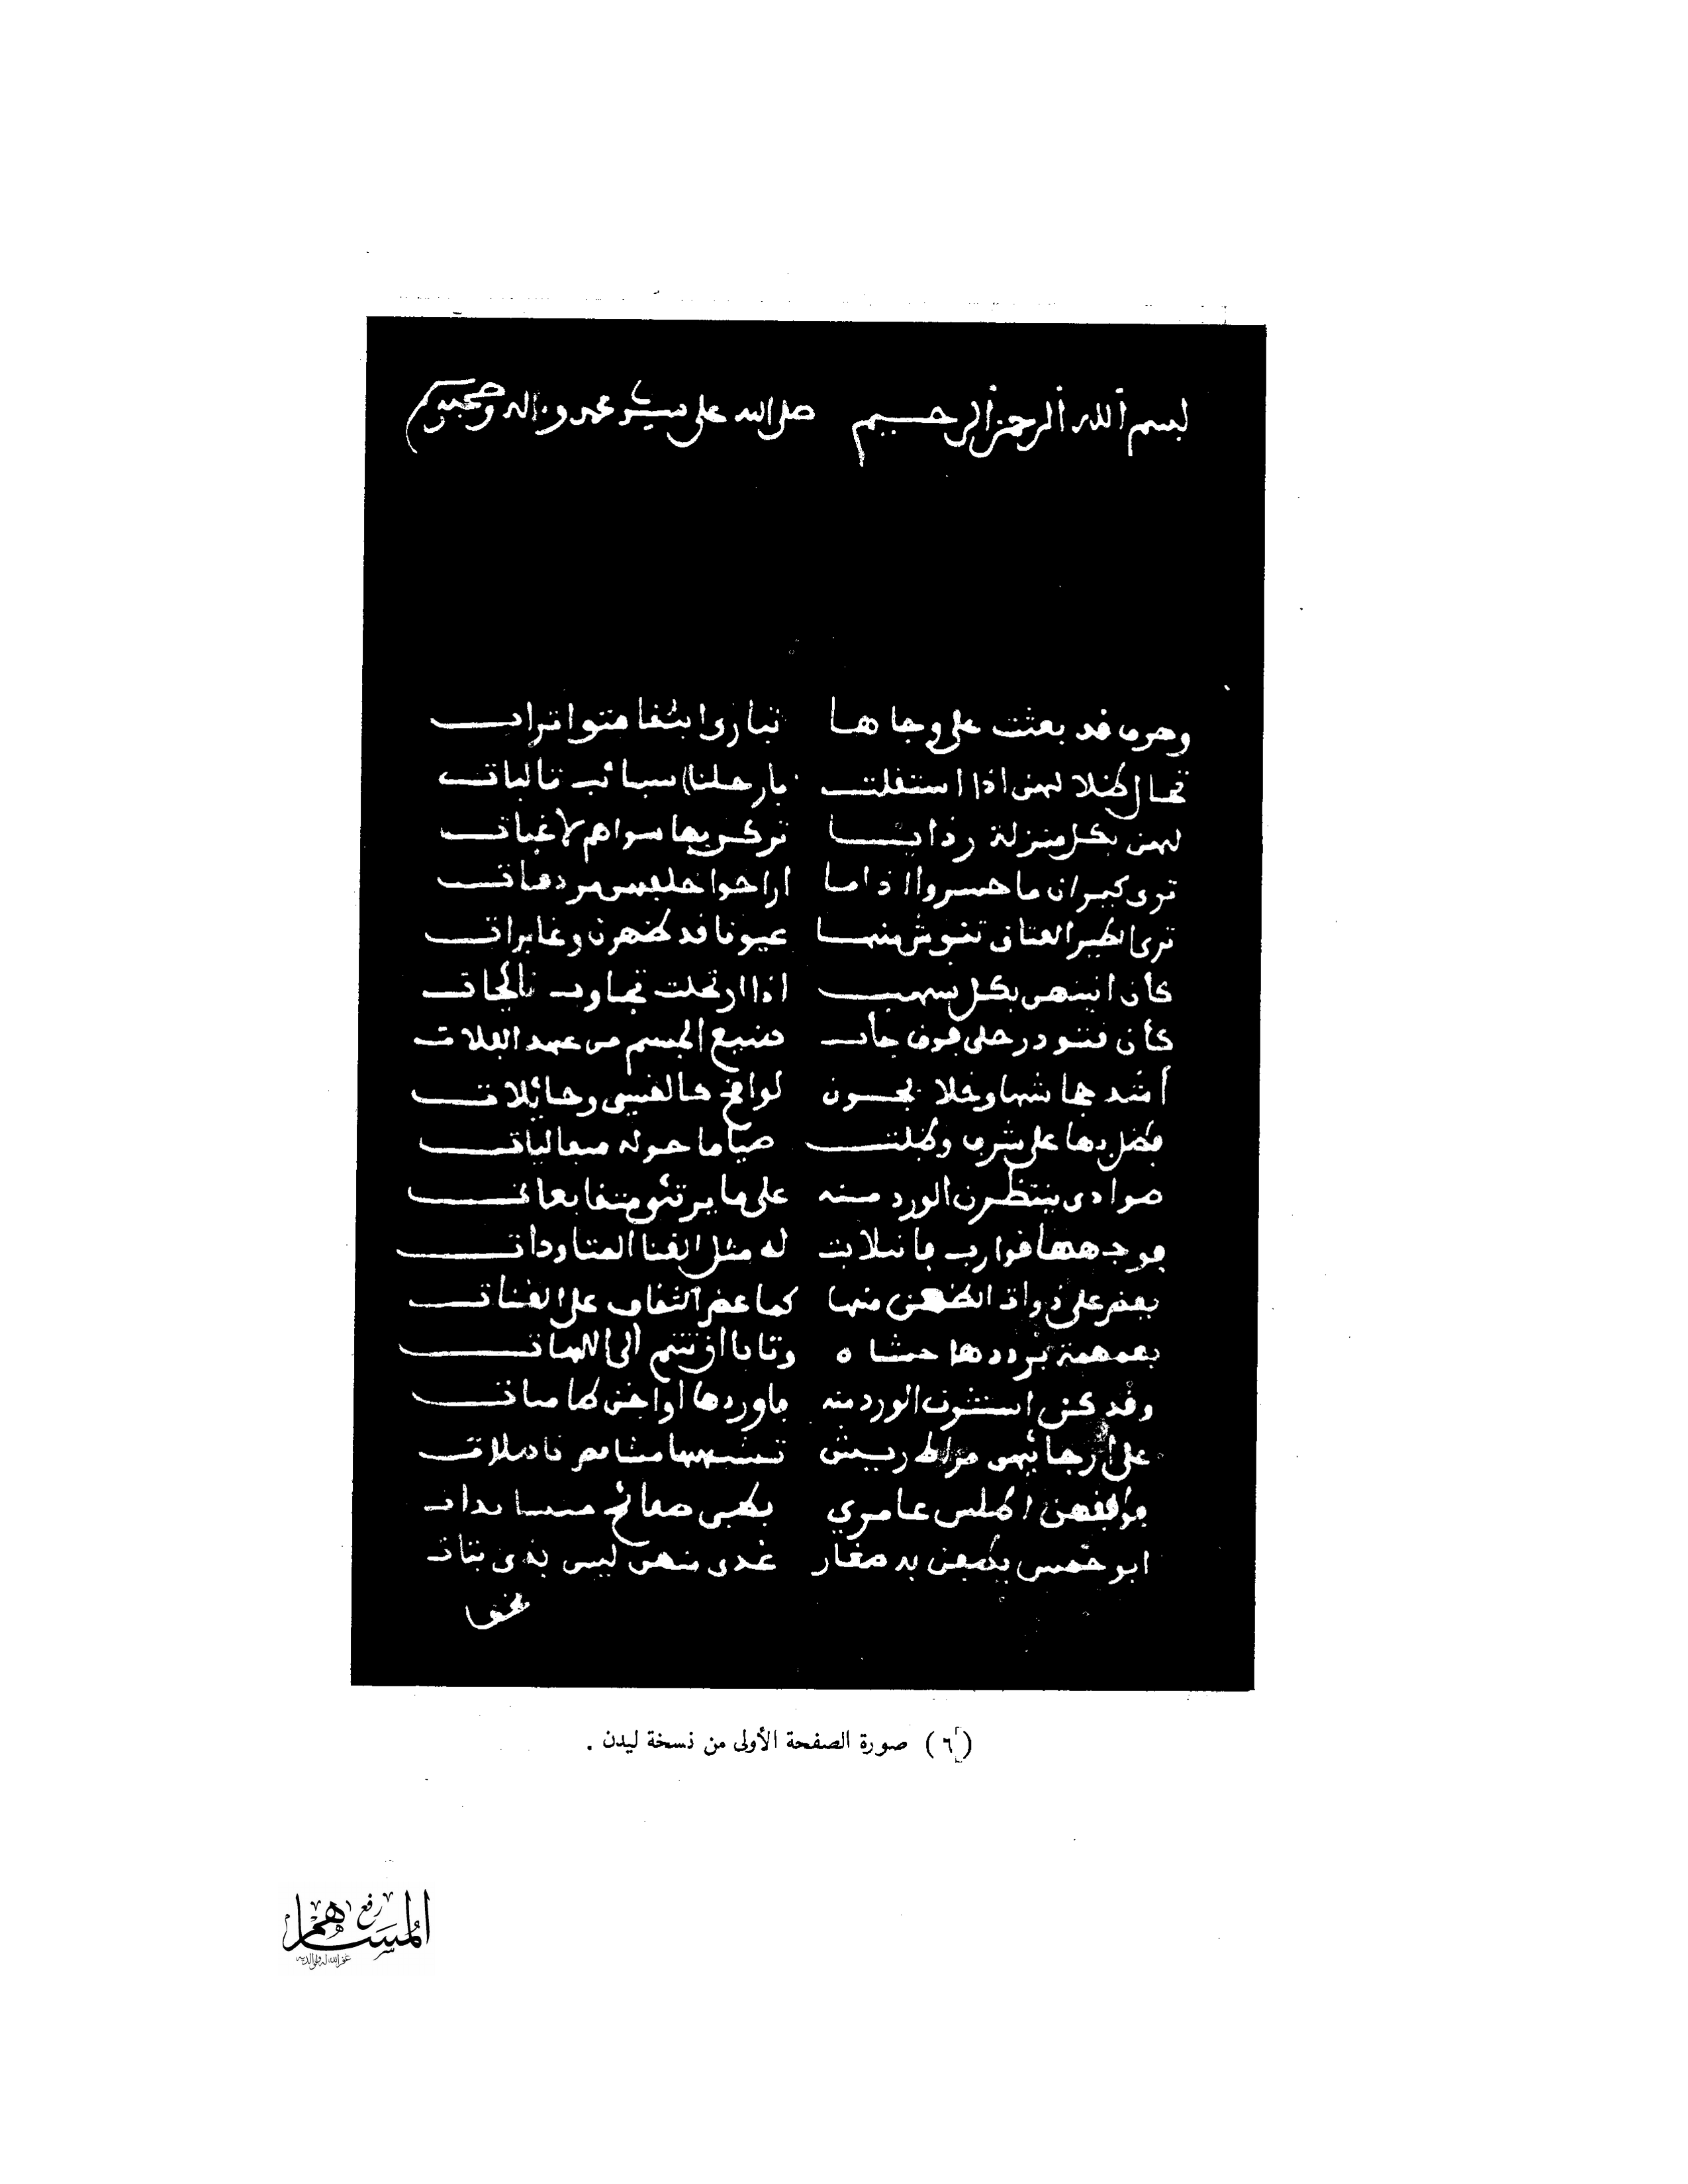 بسم الله الرحمن الرحيم صلى الله على سيدنا محمد وءاله وصحبه
وحرف قد بعثت على وجاها تبارى أينقا متواترات
تخال ظلالهن اذا استقلت بأرحلنا سبائب تاليات
لهن بكل منزلة رذايا تركن بها سواهم لاغبات
ترى كيران ما حسروا اذا ما اراحوا خلفهن مردفات
ترى الطير العتاق تنوش منها عيونا قد ظهرن وغابرات
كأن انينهن بكل سهب اذا ارتحلت تجاوب نائحات
كأن قتود رحلي فوق جأب صنيع الجسم من عهد الفلات
أشد جحاشها وخلا بجون لواقح كالقسي وحائلات
فظل بها على شرف وظلت صياما حوله متفاليات
صوادى ينتظرن الورد منه على ما يرتئى متقابعات
فوجهها قوارب فاتلابت له مثل القنا المتاودات
يعض على ذوات الضغن منها كما عض الثقاف على القنات
بهمهمة يرددها حشاه وتابا ان تتم الى اللهات
وقد كن استثرن الورد منه فاوردها اواجن طاميات
على ارجائهن مراط ريش تشبهها مشاقص ناصلات
فوافقهن اطلس عامري بطي صفائح متساندات
ابو خمس يطفن به صغار غدى منهن ليس بذى بتات
(٦) صورة الصفحة الأولى من نسخة ليدن .
رفع
المساهم
غفر الله له ولوالديه